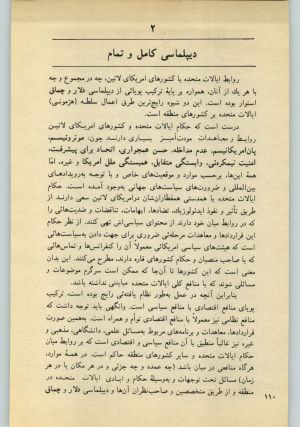 ۲
دیپلماسی کامل و تمام
روابط ایالات متحده با کشورهای امریکای لاتین، چه در مجموع و چه
با هر یک از آنان، همواره بر پایهٔ ترکیب پویائی از دیپلماسی دلار و چماق
استوار بوده است. این دو شیوه رایج‌ترین طرق اعمال سلطه (هژمونی)
ایالات متحده بر کشورهای منطقه است.
درست است که حکام ایالات متحده و کشورهای امریکای لاتین
روابط و معاهدات مودت‌آمیز بسیاری دارند چون، مونروئیسم،
پان‌امریکانیسم، عدم مداخله، حسن همجواری، اتحاد برای پیشرفت،
امنیت نیمکره‌ئی، وابستگی متقابل، همبستگی ملل امریکا و غیره، اما
همهٔ این‌ها، برحسب موارد و موقعیت‌های خاص و با توجه به رویدادهای
بین‌المللی و ضرورت‌های سیاست‌های جهانی به‌وجود آمده است. حکام
ایالات متحده با همدستی همقطاران‌شان در امریکای لاتین سعی دارند از
طریق تأثیر و نفوذ ایدئولوژیک، تضادها، ابهامات، تناقضات و ضدیت‌هائی را
که در روابط میان خود دارند از محتوای سیاسی‌اش تهی کنند. از نظر حکام
این قراردادها و معاهدات مرحله‌ئی ضروری برای جهت دادن به سیاست‌هائی
است که هیئت‌های سیاسی امریکائی معمولاً آن را کنفرانس‌ها و تماس‌هائی
که با صاحب منصبان و حکام کشورهای قاره دارند، مطرح می‌کنند. این بدان
معنی است که این کشورها تا آن‌جا که ممکن است سرگرم موضوعات و
مسائلی شوند که با منافع کلی ایالات متحده مباینتی نداشته باشد.
بنابراین آنچه در عمل به‌طور نظام یافته‌ئی رایج بوده است، ترکیب
پویای منافع اقتصادی با منافع سیاسی است. وانگهی باید توجه داشت که
منافع نظامی نیز معمولاً با منافع اقتصادی توأم و همراه است. به‌همین صورت
قراردادها، معاهدات و برنامه‌های مربوط به‌مسائل علمی، دانشگاهی، مذهبی و
غیره نیز غالباً منطبق با آن منافع سیاسی و اقتصادی است که بر روابط میان
حکام ایالات متحده و سایر کشورهای منطقه حاکم است. در همهٔ موارد،
هرگاه منافعی در میان باشد (چه عمده و چه جزئی و در هر مکان یا در هر
زمان) مسائل تحت توجهات و به‌وسیلهٔ حکام و ایادی ایالات متحده در
منطقه و از طریق متخصصین و صاحب‌نظران آن‌ها و دیپلماسی دلار و چماق
۱۱۰